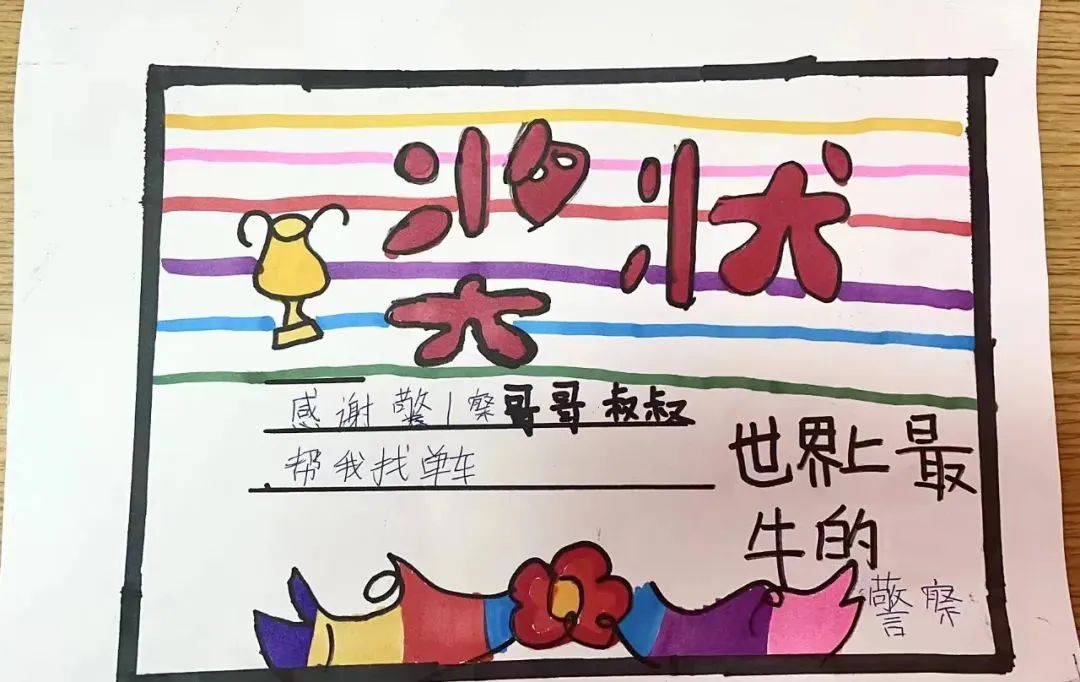 奖状
感谢警察哥哥叔叔
帮我找单车
世界上最
牛的
警察